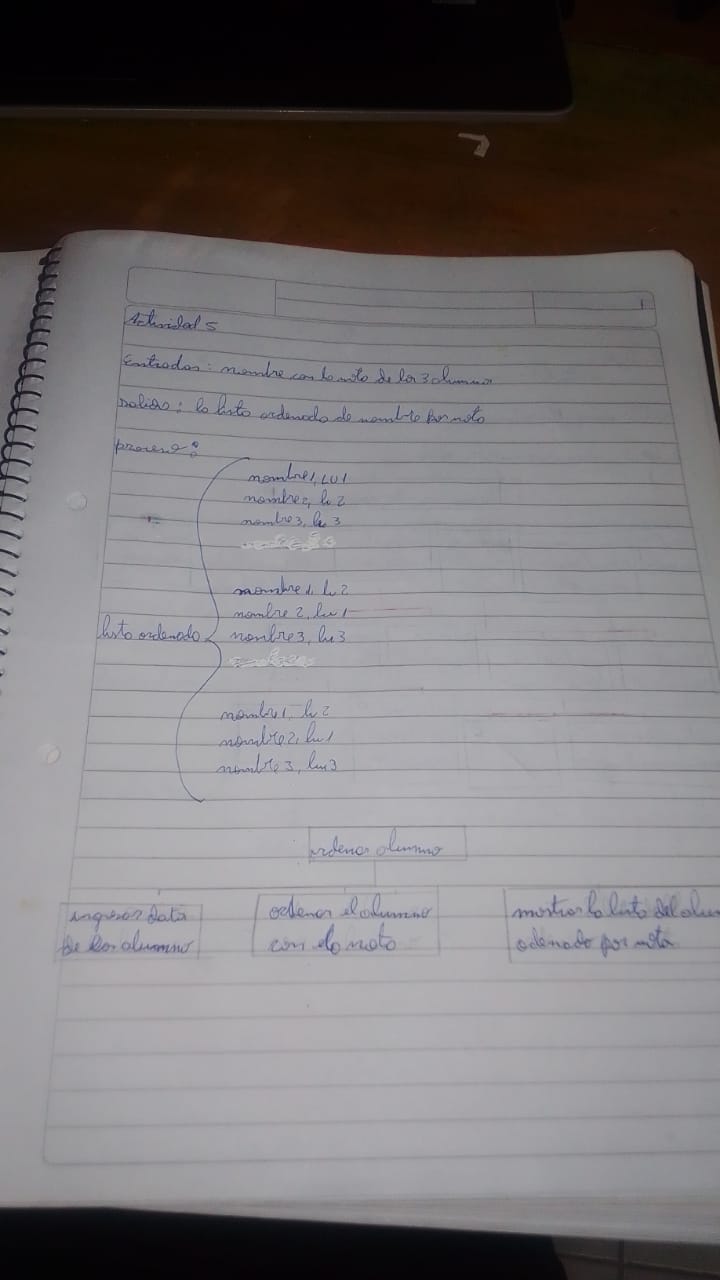 Actividad 5
Entradas: nombre con la nota de los 3 alumnos
salidas: la lista ordenada de nombre por nota
proceso:
nombre1, LU1
nombre2, lu2
nombre3, lu3
nombre1, lu2
nombre2, lu1
lista ordenado
nombre3, lu3
nombre1, lu2
nombre2, lu1
nombre3, lu3
ordenar alumno
ingresar data
de los alumno
ordenar el alumno
con la nota
mostrar la lista del alum
odenado por nota